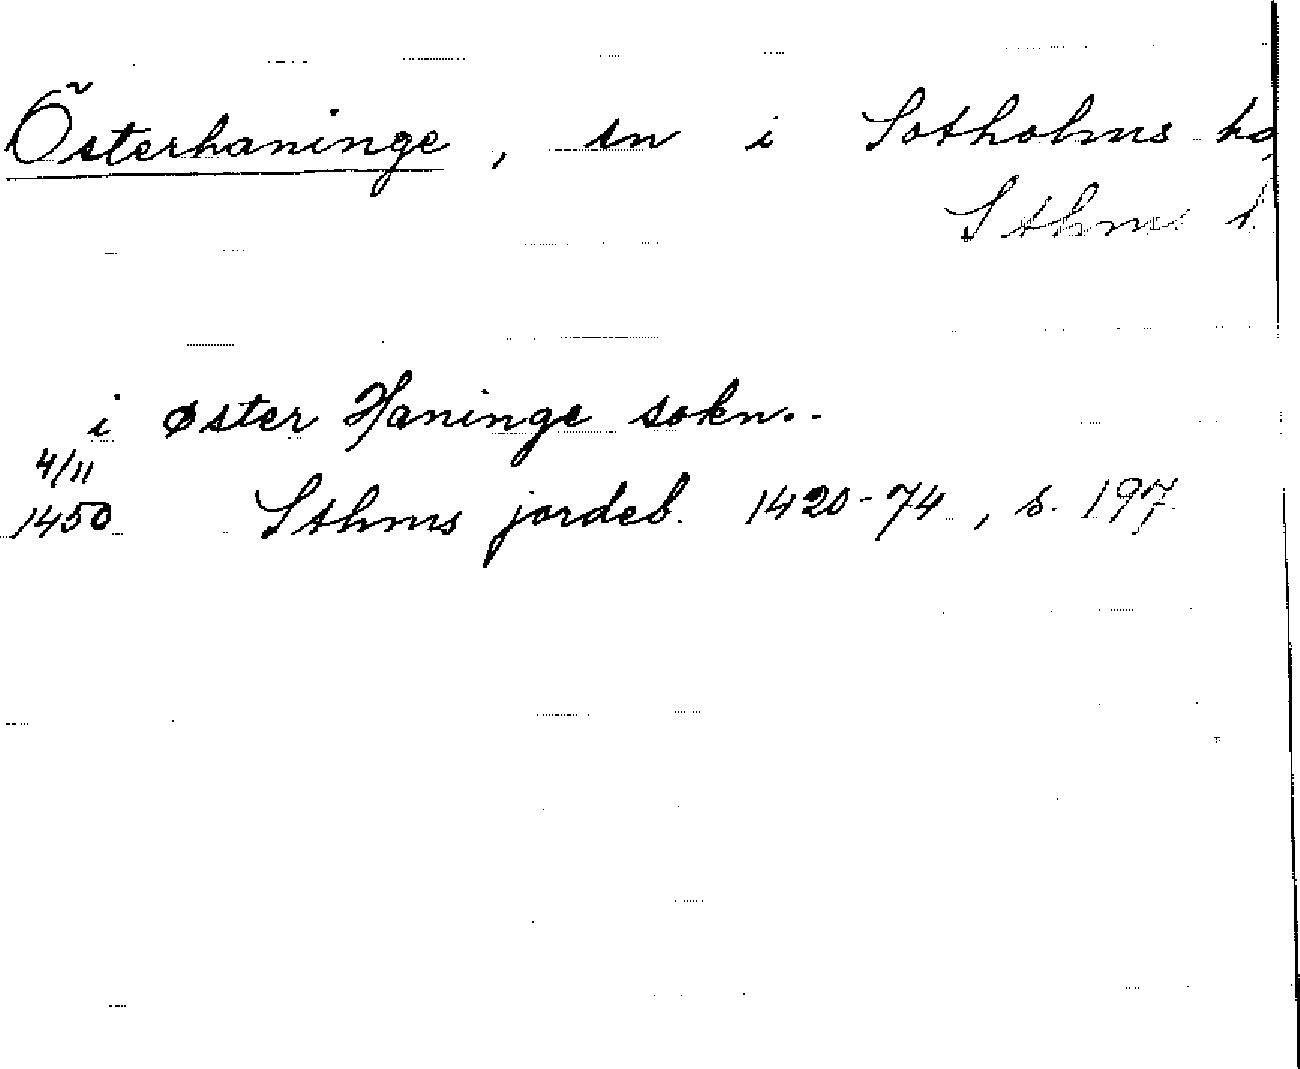 Österhaninge, sn i Sotholms hd
Sthms l.
i øster Haninge sokn.
4/11
1450 Sthms jordeb. 1420-74, s. 197